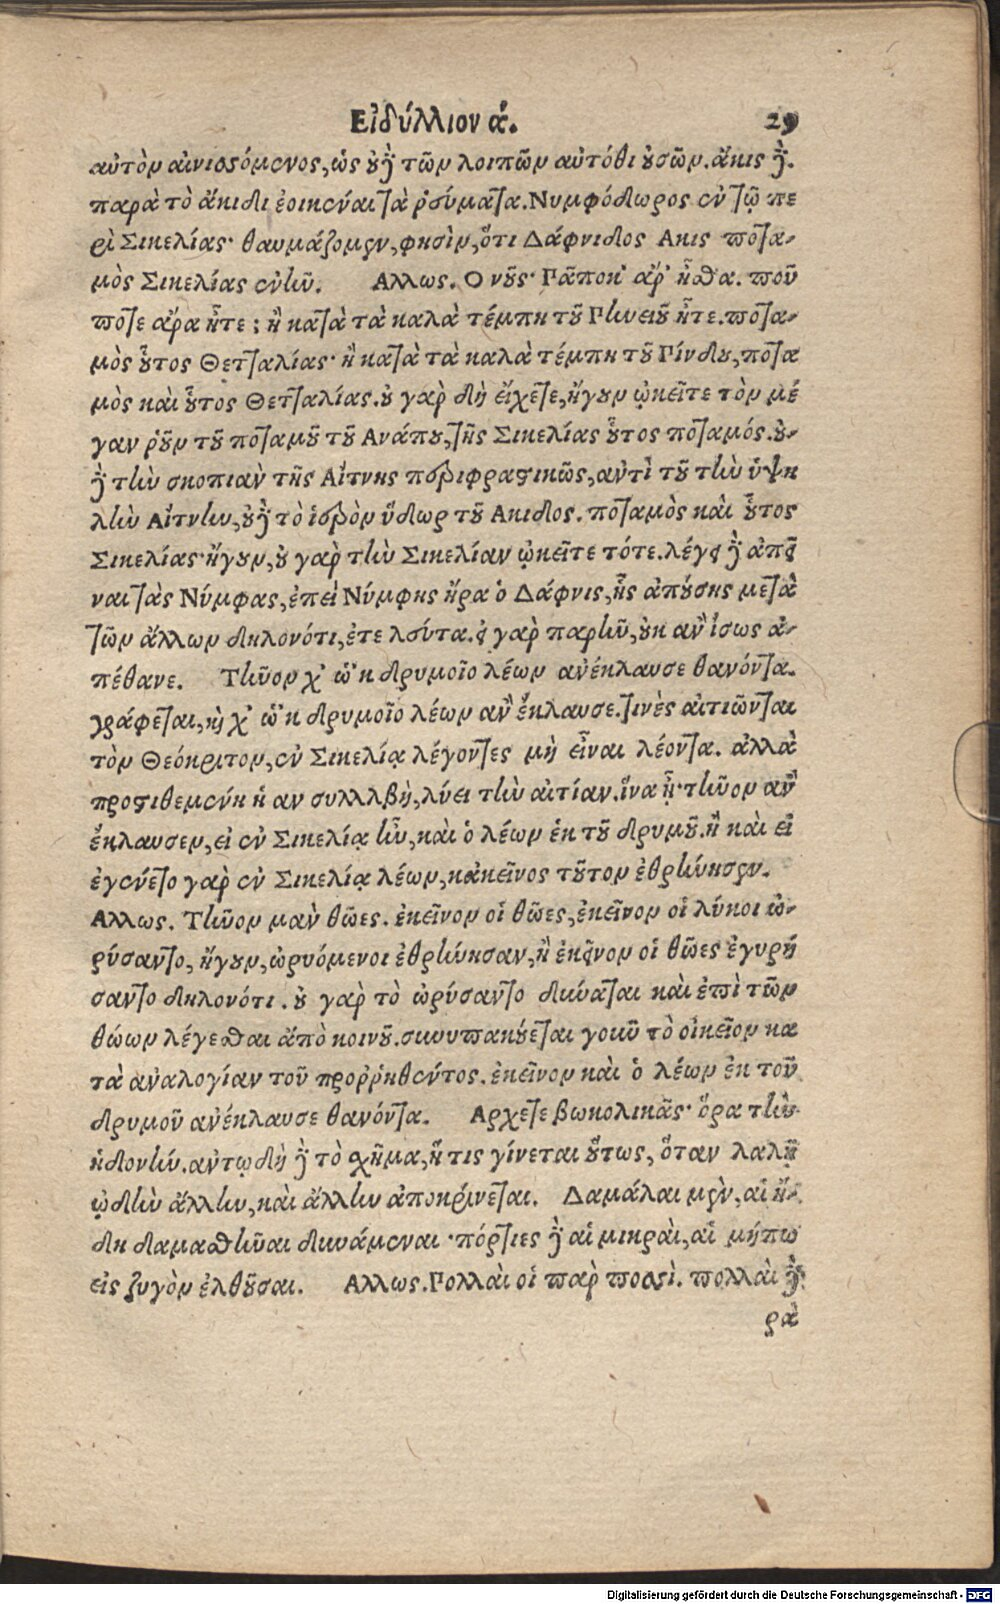 Εἰδύλλιον ά. 29
αὐτὸν αἰνιττόμενος, ὡς οὐδὲ τῶν λοιπῶν αὐτόθι οὐσῶν. ἄκις δὲ
παρὰ τὸ ἄκιδι ἐοικέναι τὰ ῥεύματα. Νυμφόδωρος ἐν τῷ πε
ρὶ Σικελίας· θαυμάζομεν, φησὶν, ὅτι Δάφνιδος Ακις ποτα-
μὸς Σικελίας ἐν ᾧ. Αλλως. Ο νοῦς· Πᾶποκ' ἄρ' ἦσθα. ποῦ
ποτε ἄρα ἦτε; ἢ κατὰ τὰ καλὰ τέμπη τοῦ Πηνειοῦ ἦτε. ποτα-
μὸς οὗτος Θετταλίας· ἢ κατὰ τὰ καλὰ τέμπη τοῦ Πίνδου, ποτα
μὸς καὶ οὗτος Θετταλίας. οὐ γὰρ δὴ εἴχετε, ἤγουν ᾠκεῖτε τὸν μέ
γαν ῥοῦν τοῦ ποταμοῦ τοῦ Ανάπου, τῆς Σικελίας οὗτος ποταμός. οὐ-
δὲ τὴν σκοπιὰν τῆς Αἴτνης περιφραστικῶς, αντὶ τοῦ τὴν ὑψη
λὴν Αἴτνην, οὐδὲ τὸ ἱερὸν ὕδωρ τοῦ Ακιδος. ποταμὸς καὶ οὗτος
Σικελίας· ἤγουν, οὐ γὰρ τὴν Σικελίαν ᾠκεῖτε τότε. λέγει δὲ ἀπεῖ
ναι τὰς Νύμφας, ἐπεὶ Νύμφης ἤρα ὁ Δάφνις, ἧς ἀπούσης μετὰ
τῶν ἄλλων δηλονότι, ἐτελεύτα. εἰ γὰρ παρῆν, οὐκ ἂν ἴσως ἀ-
πέθανε. Τῆνον χ' ὢ 'κ δρυμοῖο λέων ανέκλαυσε θανόντα.
γράφεται, καὶ χ' ὢ 'κ δρυμοῖο λέων αν ἔκλαυσε. τινὲς αἰτιῶνται
τὸν Θεόκριτον, ἐν Σικελίᾳ λέγοντες μὴ εἶναι λέοντα. ἀλλὰ
προστιθεμένη ἡ αν συλλαβὴ, λύει τὴν αἰτίαν. ἵνα ᾖ· τῆνον αν
ἔκλαυσεν, εἰ ἐν Σικελίᾳ ἦν, καὶ ὁ λέων ἐκ τοῦ δρυμοῦ. ἢ καὶ εἰ
ἐγένετο γὰρ ἐν Σικελίᾳ λέων, κἀκεῖνος τοῦτον ἐθρήνησεν.
Αλλως. Τῆνον μὰν θῶες. ἐκεῖνον οἱ θῶες, ἐκεῖνον οἱ λύκοι ὠ-
ρύσαντο, ἤγουν, ὠρυόμενοι ἐθρήνησαν, ἢ ἐκεῖνον οἱ θῶες ἐγυρή
σαντο δηλονότι. οὐ γὰρ τὸ ὠρύσαντο δύναται καὶ ἐπὶ τῶν
θώων λέγεσθαι ἀπὸ κοινοῦ. συνυπακούεται γοῦν τὸ οἰκεῖον κα
τὰ αναλογίαν τοῦ προῤῥηθέντος. ἐκεῖνον καὶ ὁ λέων ἐκ τοῦ
δρυμοῦ ανέκλαυσε θανόντα. Αρχετε βωκολικᾶς· ὅρα τὴν
ἡδονὴν. αντῳδὴ δὲ τὸ σχῆμα, ἥτις γίνεται οὕτως, ὅταν λαλῇ
ᾠδὴν ἄλλην, καὶ ἄλλην ἀποκρίνεται. Δαμάλαι μὲν, αἱ ἤ-
δη δαμασθῆναι δυνάμεναι· πόρτιες δὲ αἱ μικραὶ, αἱ μήπω
εἰς ζυγὸν ἐλθοῦσαι. Αλλως. Πολλαὶ οἱ παρ ποσσὶ. πολλαὶ δὲ
ρα
Digitalisierung gefördert durch die Deutsche Forschungsgemeinschaft - DFG